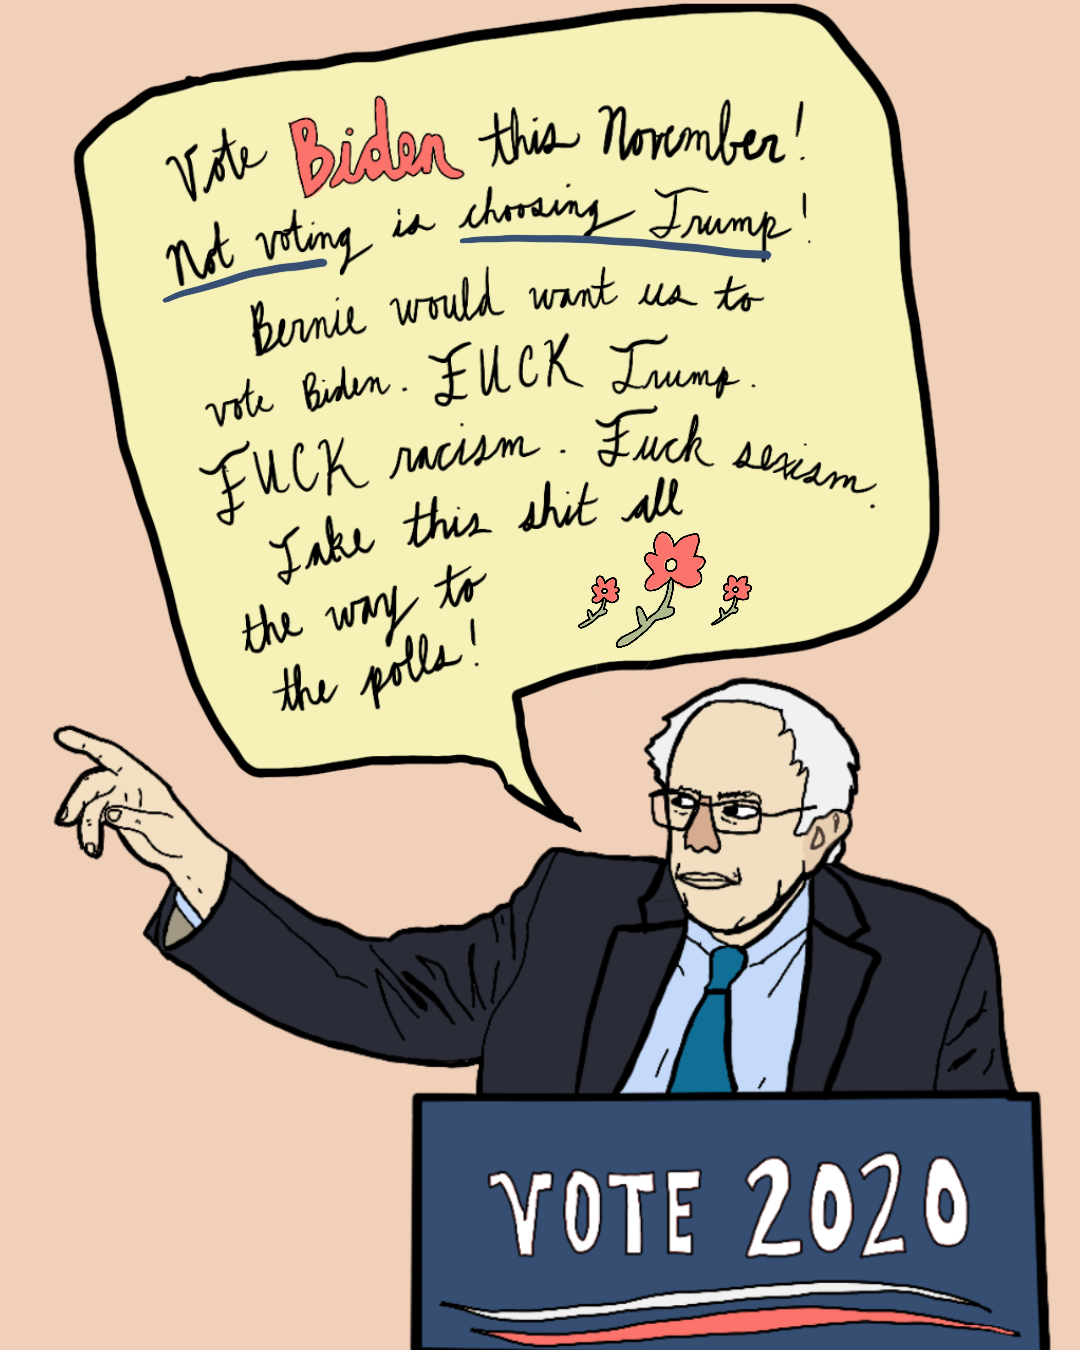 Vote Biden this November!
Not voting is choosing Trump!
Bernie would want us to
vote Biden. FUCK Trump.
FUCK racism. Fuck sexism.
Take this shit all
the way to
the polls!
VOTE 2020